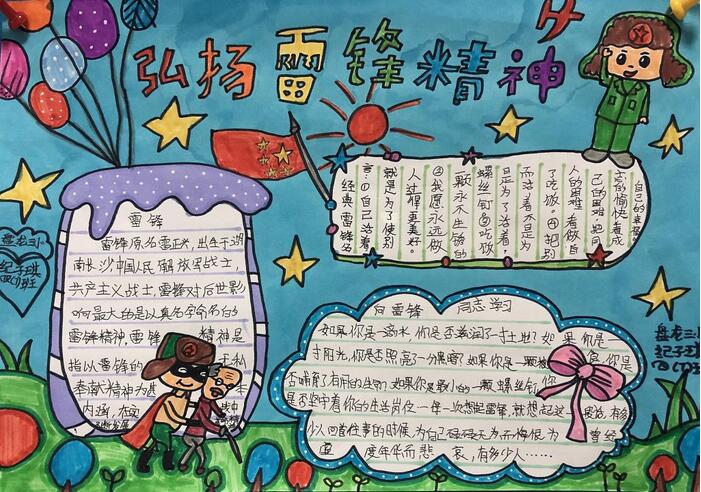 弘扬雷锋精神
雷锋
雷锋原名雷正兴,出生于湖
南长沙中国人民解放军战士
共产主义战士,雷锋对后世影
响最大的是以其名字命名的
雷锋精神,雷锋精神是
指以雷锋的无私
奉献精神为基
内涵,在实
自己的
高的愉快看成
己的困难,把同
人的困难,看做自
了吃饭。④把别
而活着,不是为
是为了活着,
螺丝钉③吃饭
一颗永不生锈的
②我愿永远做
人过得更美好。
就是为了使别
言:①自己活着,
经典雷锋名
向雷锋同志学习
如果你是一滴水,你是否滋润了一寸土地?如果你是一
寸阳光,你是否照亮了一分黑暗?如果你是一颗粮食,你是
否哺育了有用的生命?如果你是最小的一颗螺丝钉,你
是否坚守着你的生活岗位 每一次想起雷锋,就想起这
以回首往事的时候,为自己碌碌无为而悔恨为曾经
虚度年华而悲哀,有多少人……
盘龙三小
纪子琪
四(1)班
盘龙三小
纪子琪
四(1)班